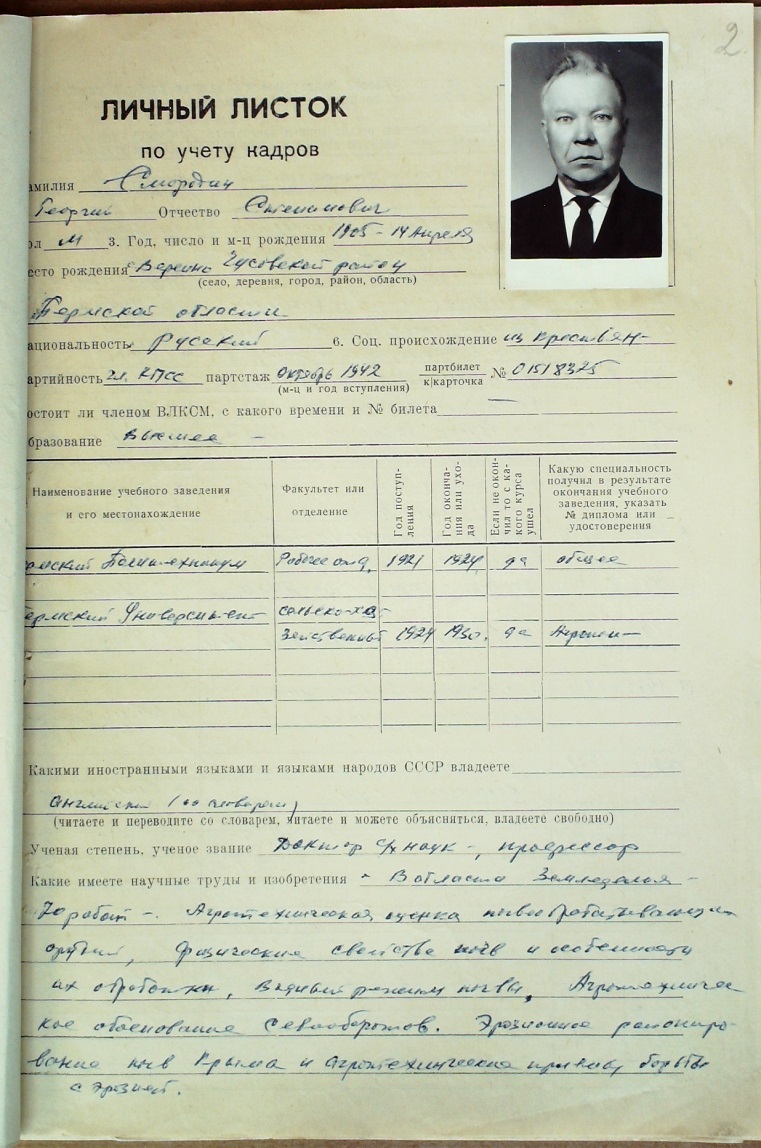 2
ЛИЧНЫЙ ЛИСТОК
по учету кадров
амилия Смородин
Георгий Отчество Степанович
ол м 3. Год, число и м-ц рождения 1905 - 14 Апреля
есто рождения Верейно Чусовской район
(село, деревня, город, район, область)
Пермской области
ациональность русский 6. Соц. происхождение из крестьян
артийность чл. КПСС партстаж октябрь 1942 партбилет № 01518325
(м-ц и год вступления) к|карточка
остоит ли членом ВЛКСМ, с какого времени и № билета —
бразование высшее —
Наименование учебного заведения и его местонахождение
Факультет или отделение
Год поступ-ления
Год оконча-ния или ухо-да
Если не окон-чил то с ка-кого курса ушел
Какую специальность получил в результате окончания учебного заведения, указать № диплома или удостоверения
рмский Политехникум Рабочее отд. 1921 1924 да общее
Пермский Университет сельско-хо-
зяйственный 1924 1930. да Агроном
Какими иностранными языками и языками народов СССР владеете
английский (со словарем)
(читаете и переводите со словарем, читаете и можете объясняться, владеете свободно)
Ученая степень, ученое звание Доктор с/х наук -, профессор
Какие имеете научные труды и изобретения - В области Земледелия -
70 работ -. Агротехническая оценка почвообрабатывающих
орудий, физические свойства почв и особенности
их обработки, Водный режим почвы, Агротехничес-
кое обоснование севооборотов. Эрозионное райониро-
вание почв Крыма и агротехнические приемы борьбы
с эрозией.